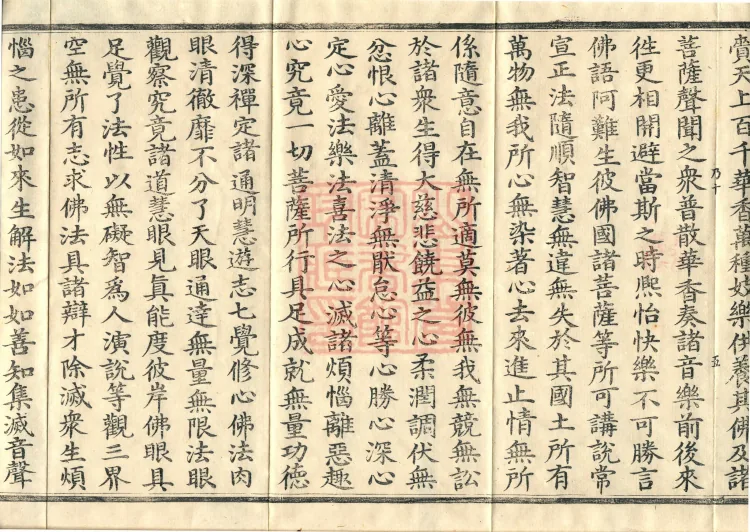 賷天上百千華香萬種妓樂供養其佛及諸
菩薩聲聞之衆普散華香奏諸音樂前後來
徃更相開避當斯之時熈怡快樂不可勝言
佛語阿難生彼佛國諸菩薩等所可講說常
宣正法隨順智慧無違無失於其國土所有
萬物無我所心無染著心去來進止情無所
係隨意自在無所適莫無彼無我無競無訟
於諸衆生得大慈悲饒益之心柔潤調伏無
忿恨心離蓋清淨無猒怠心等心勝心深心
定心愛法樂法喜法之心滅諸煩惱離惡趣
心究竟一切菩薩所行具足成就無量功德
得深禪定諸通明慧遊志七覺修心佛法肉
眼清徹靡不分了天眼通達無量無限法眼
觀察究竟諸道慧眼見眞能度彼岸佛眼具
足覺了法性以無礙智爲人演說等觀三界
空無所有志求佛法具諸辯才除滅衆生煩
惱之患從如來生解法如如善知集滅音聲
乃十
五